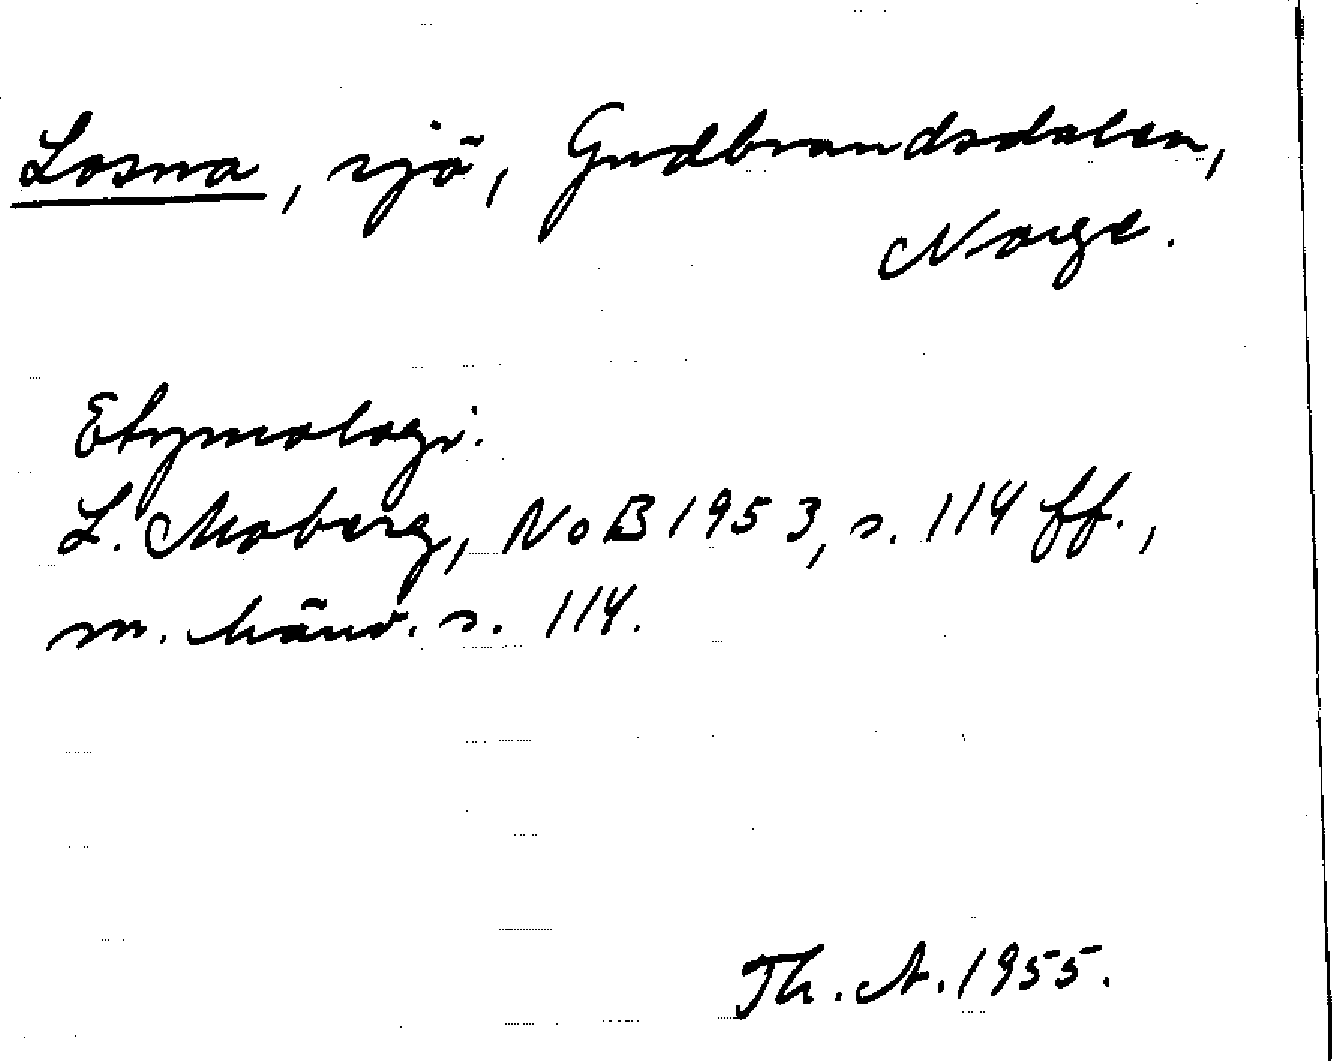 Losna, sjö, Gudbrandsdalen,
Norge.
Etymologi.
L. Moberg, NoB 1953, s. 114 ff.,
m. hänv. s. 114.
Th. A. 1955.